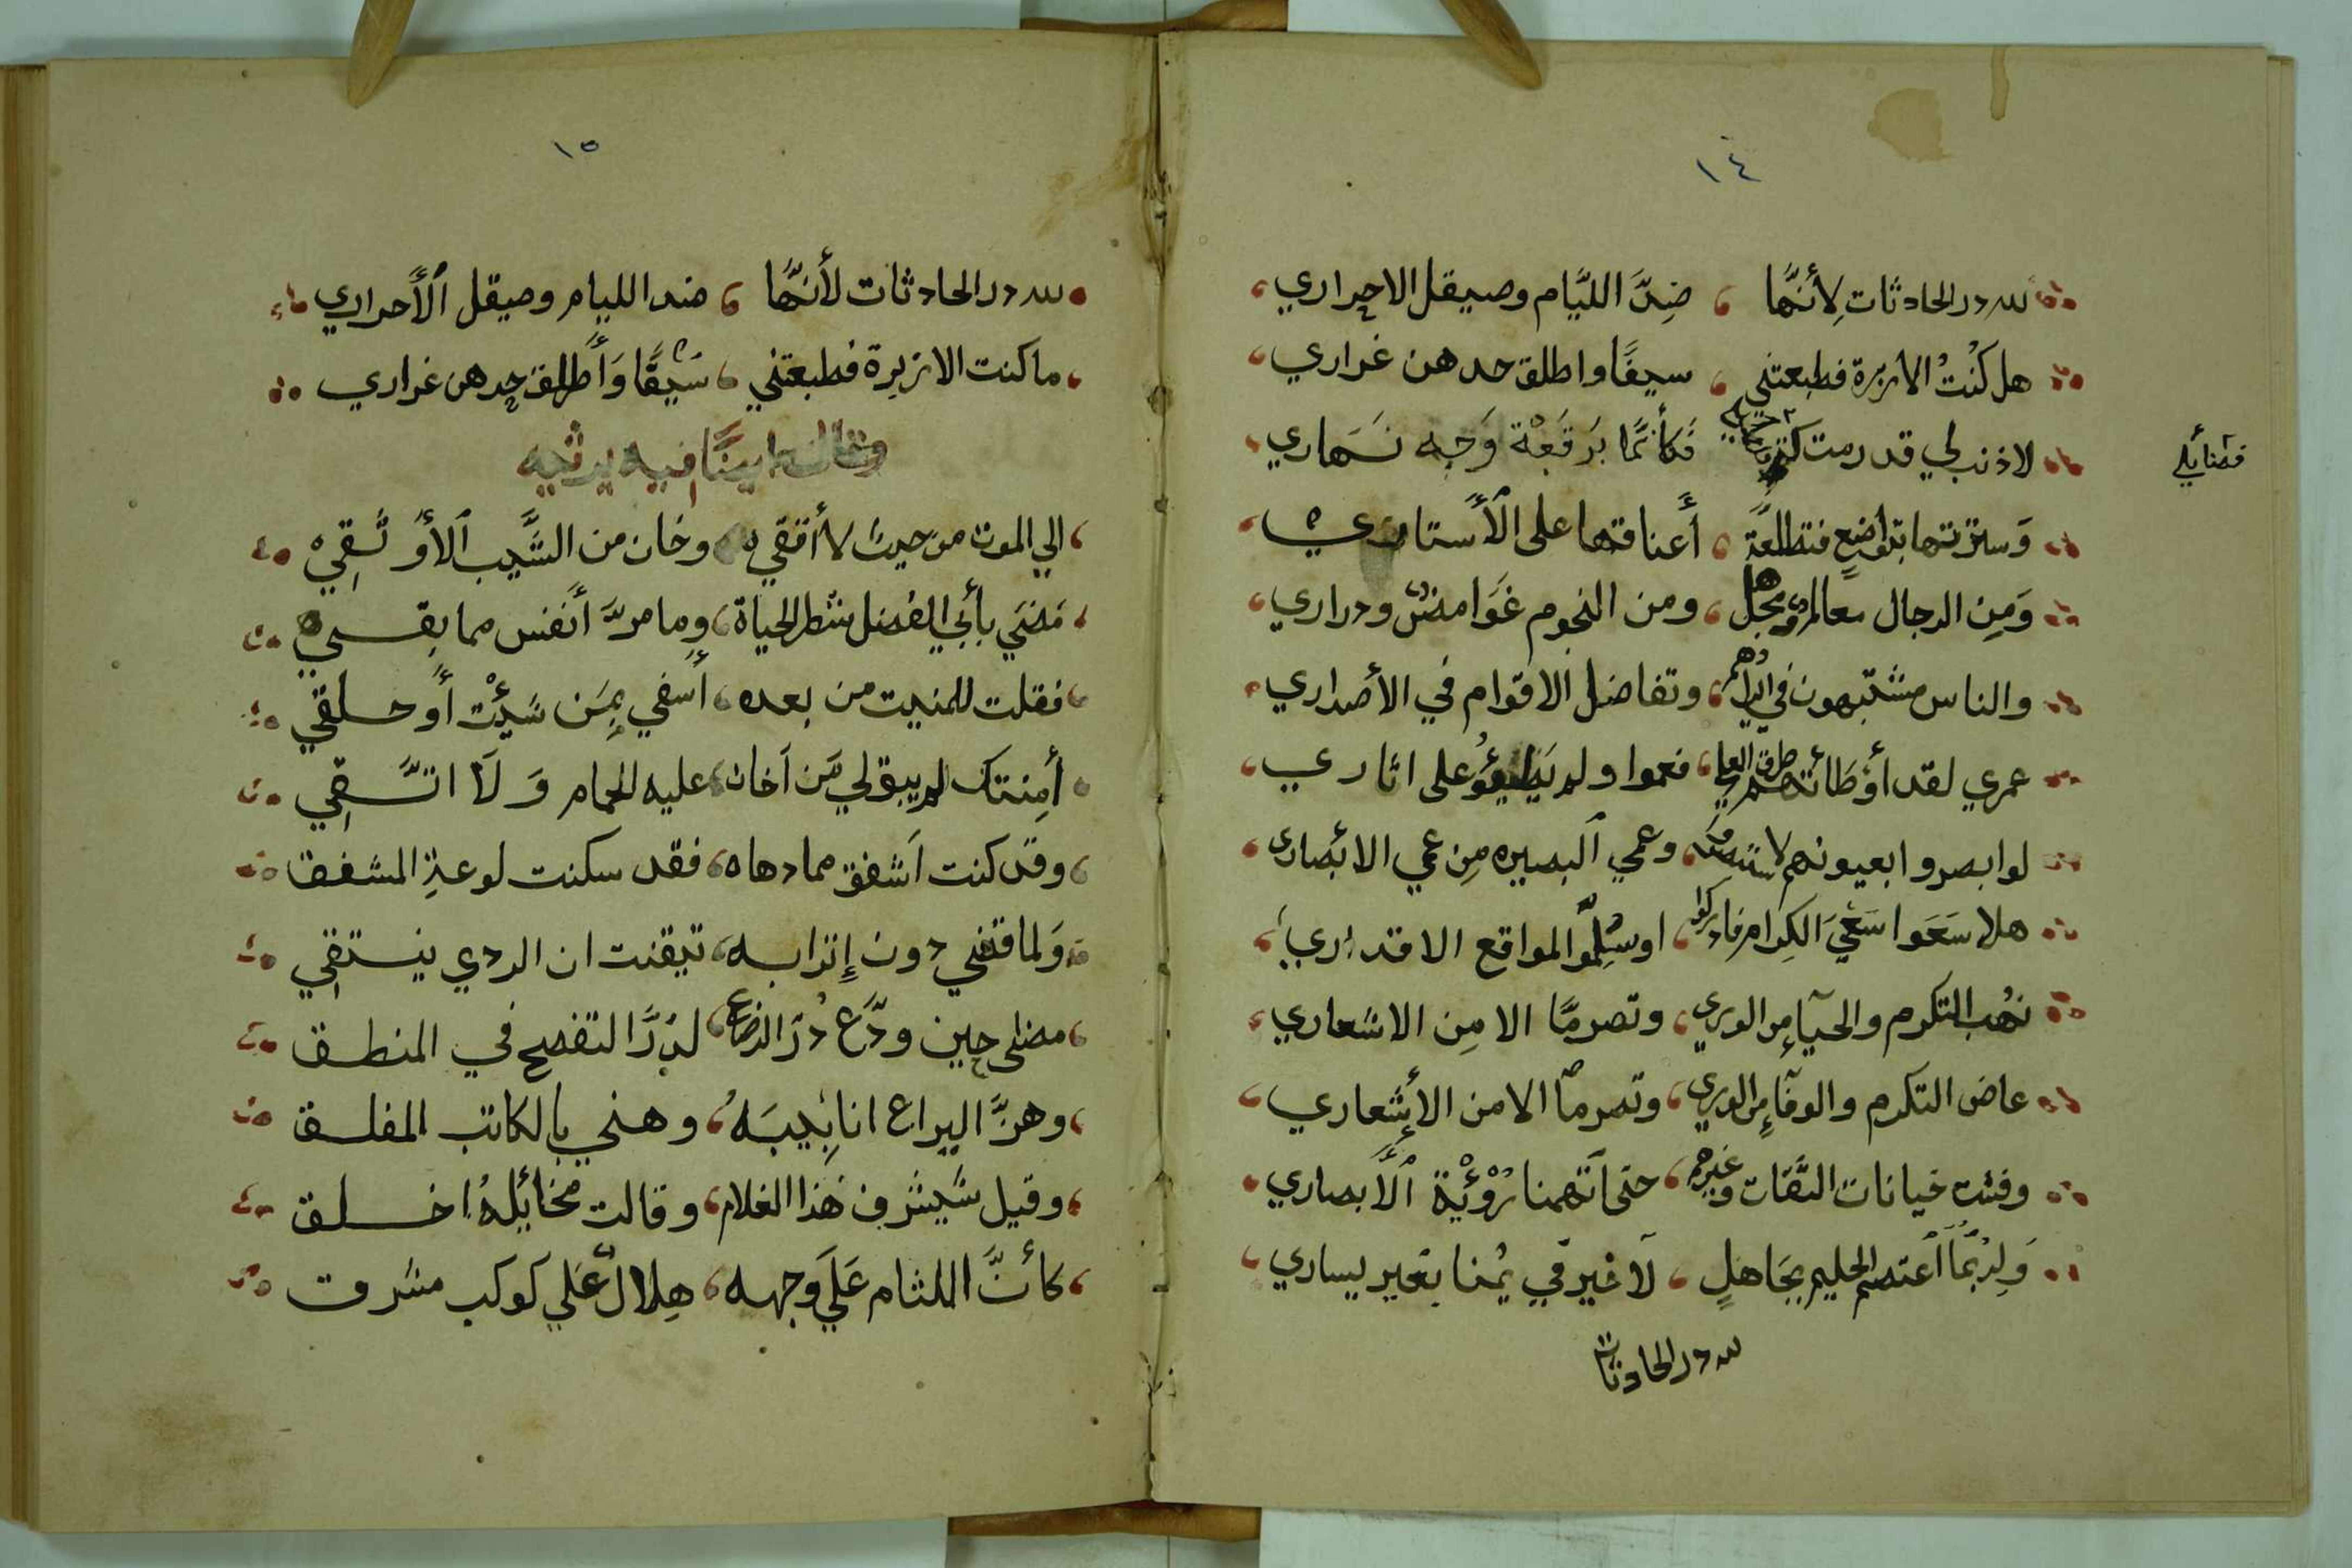 ١٤
لله در الحادثات لِأنَّها ، ضِدَّ الليَّام وصيقل الاحراري
هل كُنْتُ الا زبرة فطبعتني ، سيفًا واطلق حدهن غراري
لا ذنب لي قد رمت كتم فضائلي فَكأنَّما بَرقَعْة وَجه نَهاري
فضائلي
وَسترتها بتواضعٍ فتطلعَّة ، أَعناقها على الأستاري
وَمِن الرجال معالم ومجهل ، ومن النجوم غَوامضٌ ودراري
والناس مشتبهون في ايرادُهم ، وتفاضل الاقوام في الأصداري
عمري لقد أوْطَائتهم طرق العلي ، فعموا ولم يَطيؤُ على اثاري
لو ابصروا بعيونهم لاستبصَروا ، وعمي البصيره مِن عمي الابْصاري
هلا سَعَوا سَعْيَ الكِرام فادركوا ، او سَلِّموا لمواقع الاقداري
نهُب التكرم والحيآءِ من الوري ، وتصرمَّا الا مِن الاشعاري
عاض التكرم والوفآءِ من الوري ، وتصرماً الا من الأَشعاري
وفشت خيانات الثَّقات وغيرهم ، حتى اتَّهمنا رُوْئْية الأَبصاري
وَلِرُبَّما أعتصم الحليم بِجَاهلٍ ، لَا خيرَ في يُمنا بغير يساري
لله در الحادثات
١٥
لله در الحادثات لأنهَّا ، ضد الليام وصيقل الأَحراري
ما كنت الا زبرة فطبعتني ، سَيفًا وَأَطلق حدهن غراري
وقال ايضًا فيه يرثيه
الي الموت من حيث لا أتقي ، وخان من السَّبب الأَوْثَقِي
مَضَي بأبي الفضل شطر الحياة ، وما مرَّ أَنفس مما بقي
فقلت للمنيت من بعده ، أَسفي بِمَن شَيئْت أَو حلقي
أمِنتك لم يبق لي مَن أخان ، عليه الحمام وَلَا اتَّقِي
وقد كنت أشفق مما دهاه ، فقد سكنت لوعةِ المشفق
وَلما قضي دون إتِرابه ، تيقنت ان الردي ينتقِي
مضى حين ودَّع دَرَّ الرضاع ، لدَرَّ التفصح في المنطق
وهزَّ اليراع انابِيبَهُ ، وهني بالكاتب المفلق
وقيل سَيشرف هَذا الغلام ، وقالت مخائلهُ اخلق
كأنَّ اللثام عَلَي وجهه ، هِلالٌ عَلي كوكب مشرق